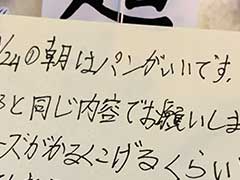 /24の朝はパンがいいです。
と同じ内容でお願いしま
ーズがかるくこげるくらい